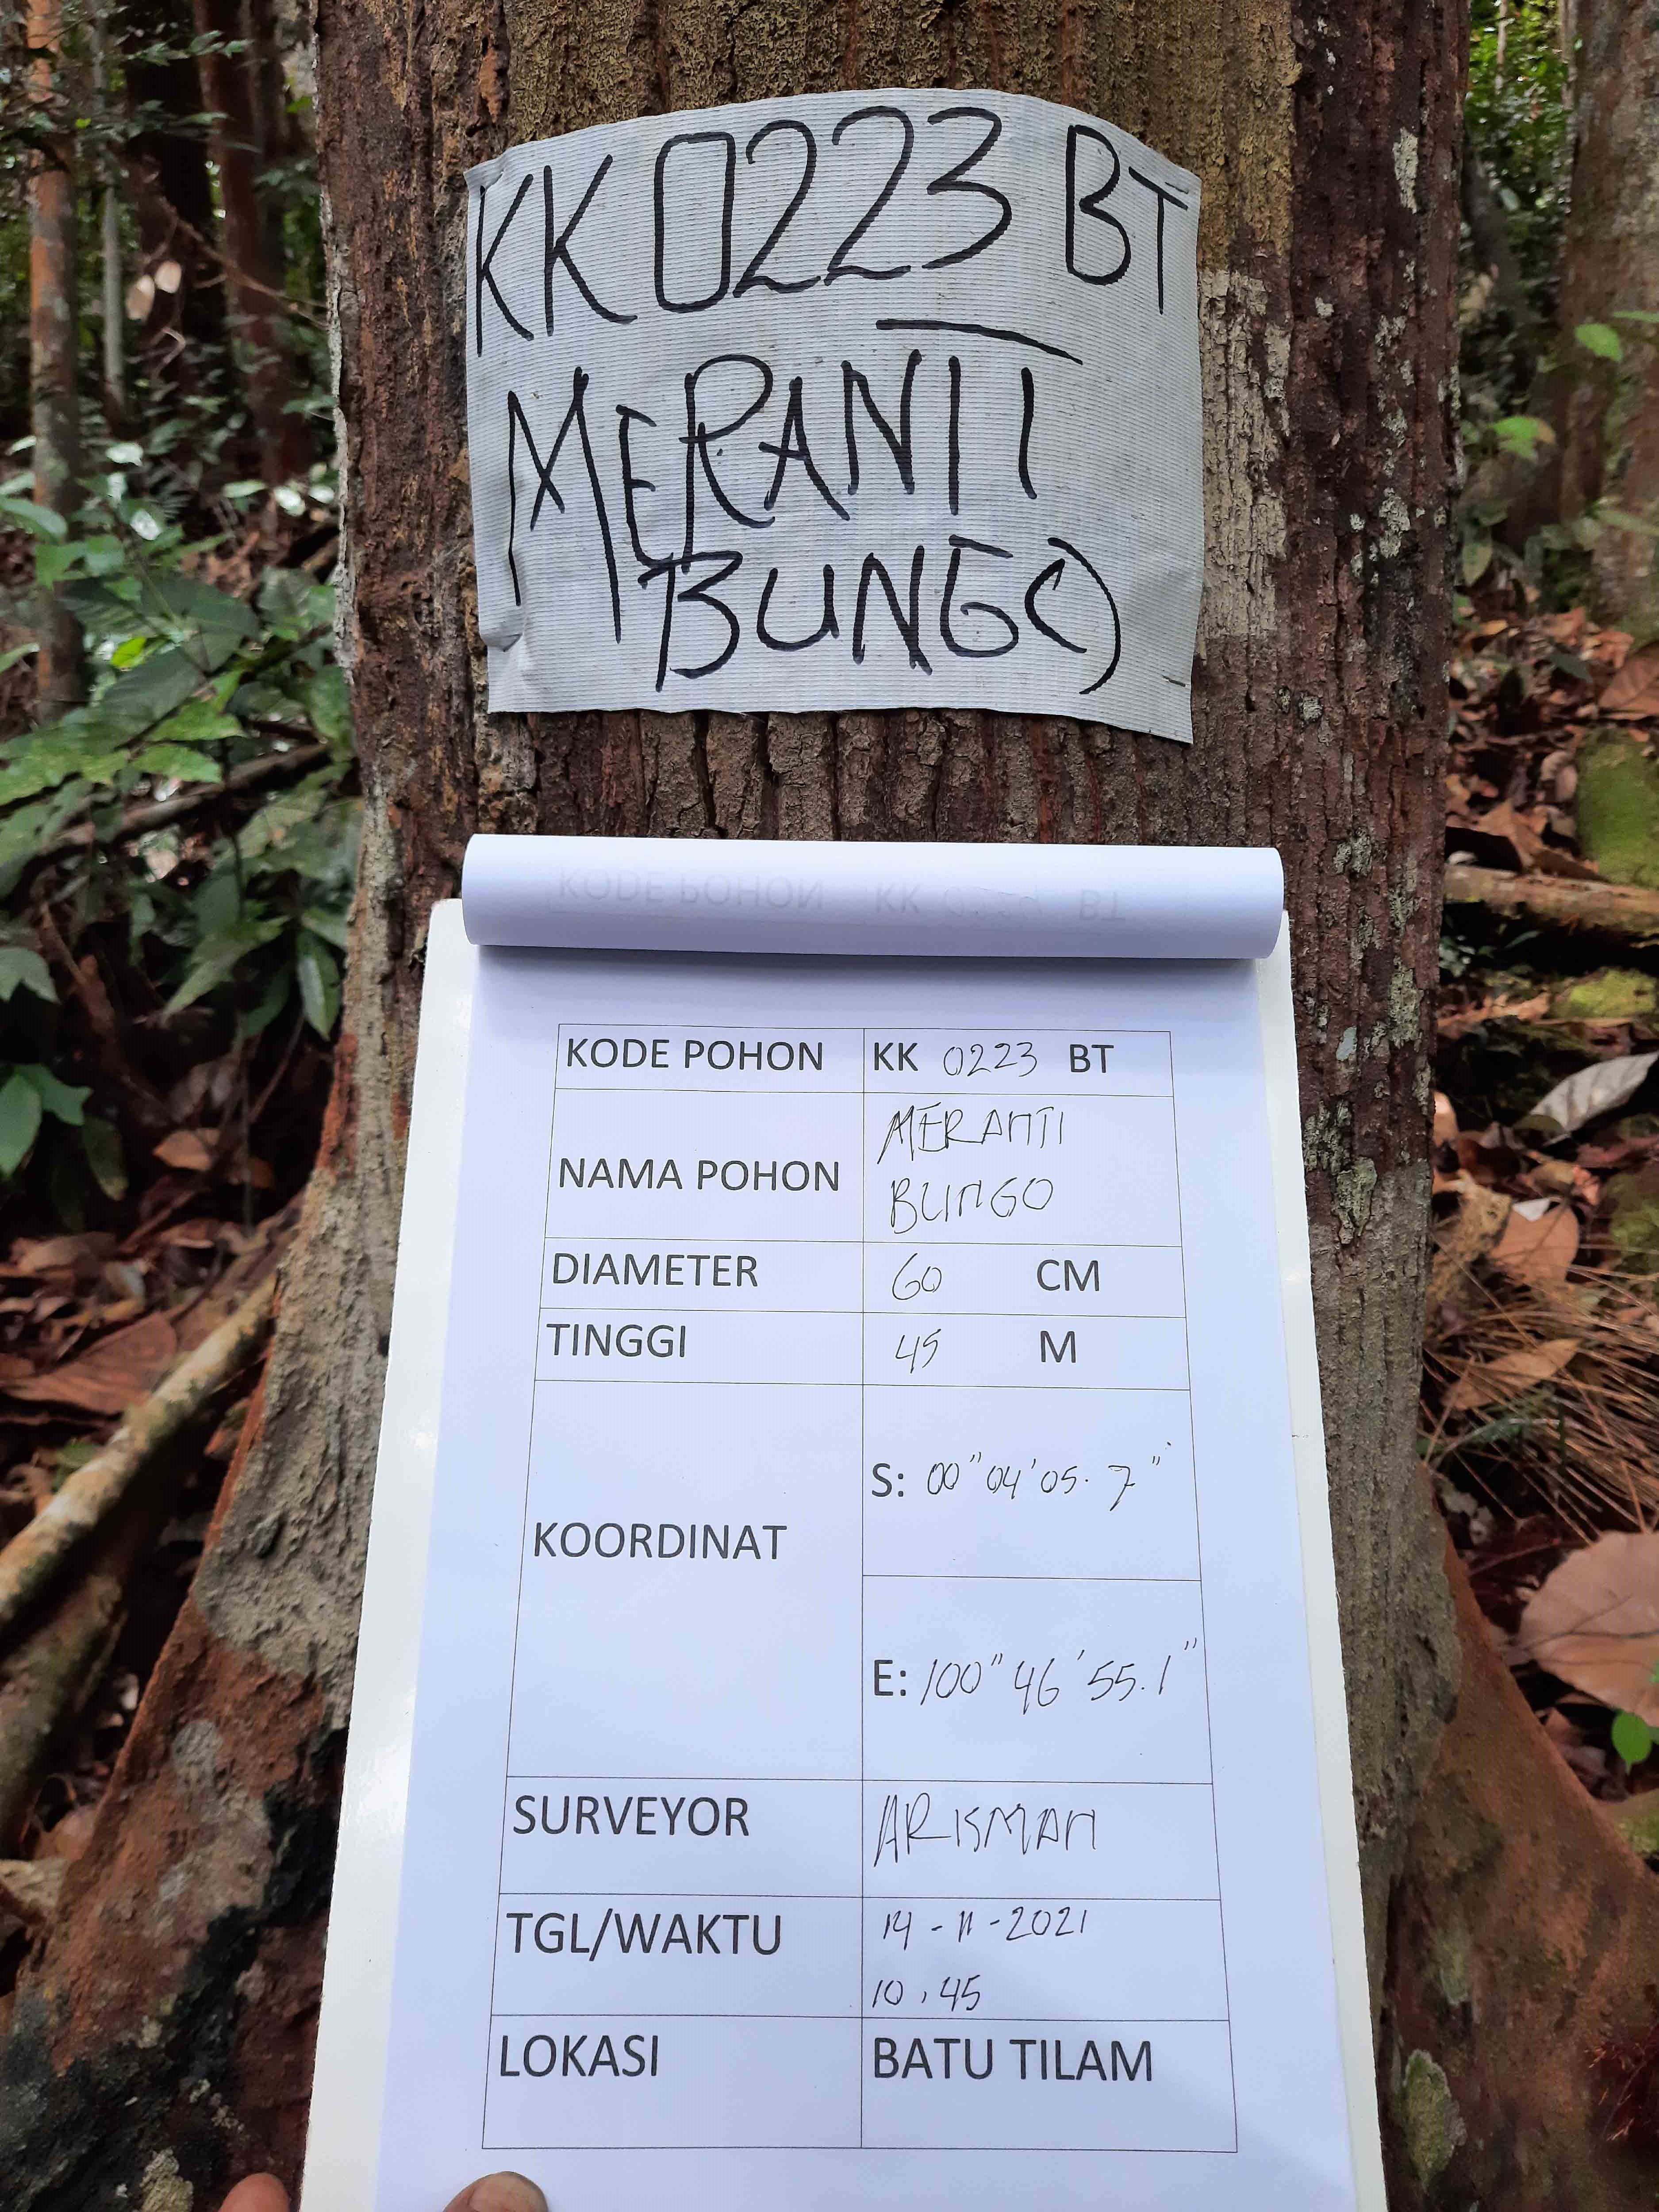 KK 0223 BT
MERANTI
BUNGO
KODE POHON KK 0223 BT
NAMA POHON MERANTI
BUNGO
DIAMETER 60 CM
TINGGI 45 M
KOORDINAT
S: 00" 04' 05.7"
E: 100" 46' 55.1"
SURVEYOR ARISMAN
TGL/WAKTU 14-11-2021
10.45
LOKASI BATU TILAM